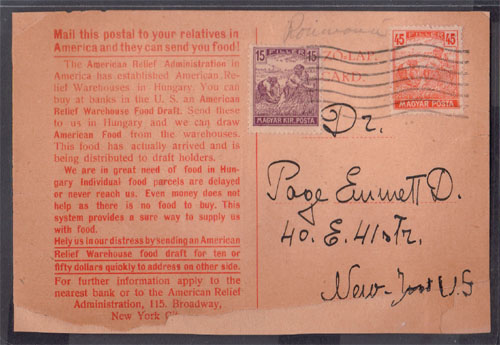 Mail this postal to your relatives in
America and they can send you food!
The American Relief Administration in
America has established American Re-
lief Warehouses in Hungary. You can
buy at banks in the U. S. an American
Relief Warehouse Food Draft. Send these
to us in Hungary and we can draw
American Food from the warehouses.
This food has actually arrived and is
being distributed to draft holders.
We are in great need of food in Hun-
gary Individual food parcels are delayed
or never reach us. Even money does not
help as there is no food to buy. This
system provides a sure way to supply us
with food.
Hely us in our distress by sending an American
Relief Warehouse food draft for ten or
fifty dollars quickly to address on other side.
For further information apply to the
nearest bank or to the American Relief
Administration, 115. Broadway,
New York
15 FILLÉR 15
MAGYAR KIR. POSTA
CARD.
45 FILLÉR 45
MAGYAR POSTA
Dr.
Page Emmett D.
40. E. 41 str.
New-York U S